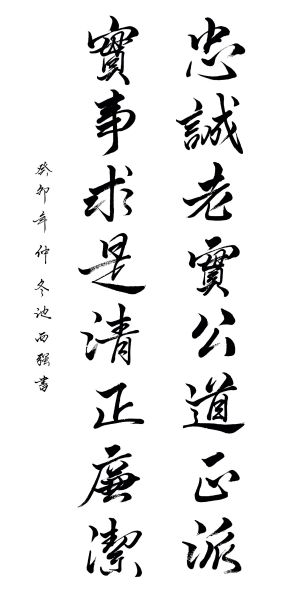 忠誠老實公道正派
實事求是清正廉潔
癸卯年仲冬池西強書